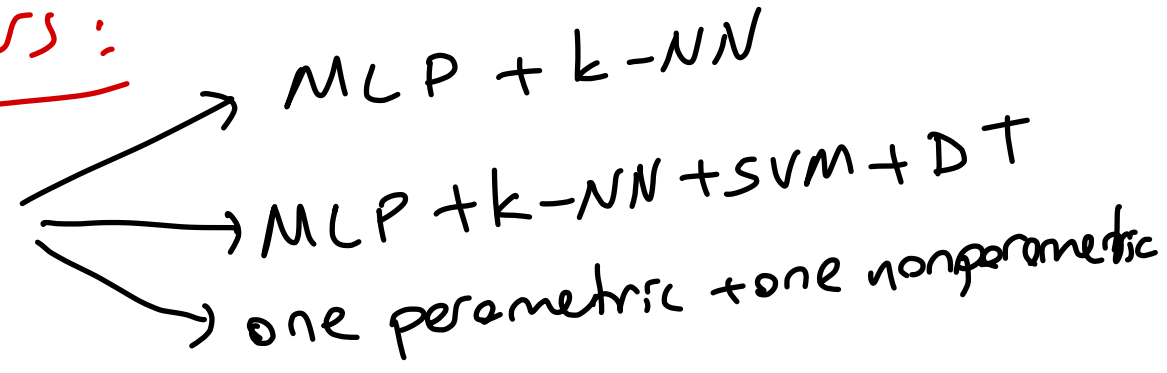 rs :
MLP + k-NN
MLP + k-NN + SVM + DT
one perametric + one nonparametric